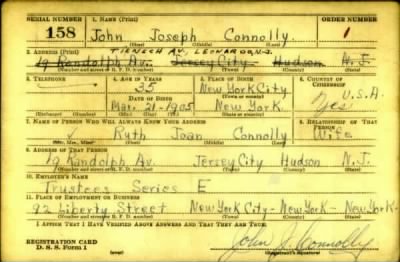 SERIAL NUMBER 1. NAME (Print) ORDER NUMBER
158 John Joseph Connolly 1
(First) (Middle) (Last)
TIENECH AV., LEONARDO, N.J.
2. ADDRESS (Print)
19 Randolph Av. Jersey City Hudson N.J.
(Number and street or R. F. D. number) (Town) (County) (State)
3. TELEPHONE 4. AGE IN YEARS 5. PLACE OF BIRTH 6. COUNTRY OF CITIZENSHIP
35 New York City U.S.A.
DATE OF BIRTH (Town or county)
Mar. 21-1905 New York yes!
(Mo.) (Day) (Yr.) (State or country)
7. NAME OF PERSON WHO WILL ALWAYS KNOW YOUR ADDRESS 8. RELATIONSHIP OF THAT PERSON
Ruth Joan Connolly Wife
(Mr., Mrs., Miss) (First) (Middle) (Last)
9. ADDRESS OF THAT PERSON
19 Randolph Av. Jersey City Hudson N.J.
(Number and street or R. F. D. number) (Town) (County) (State)
10. EMPLOYER'S NAME
Trustees Series E
11. PLACE OF EMPLOYMENT OR BUSINESS
92 Liberty Street New York City - New York - New York -
(Number and street or R. F. D. number) (Town) (County) (State)
I AFFIRM THAT I HAVE VERIFIED ABOVE ANSWERS AND THAT THEY ARE TRUE.
REGISTRATION CARD
D. S. S. Form 1 John J. Connolly